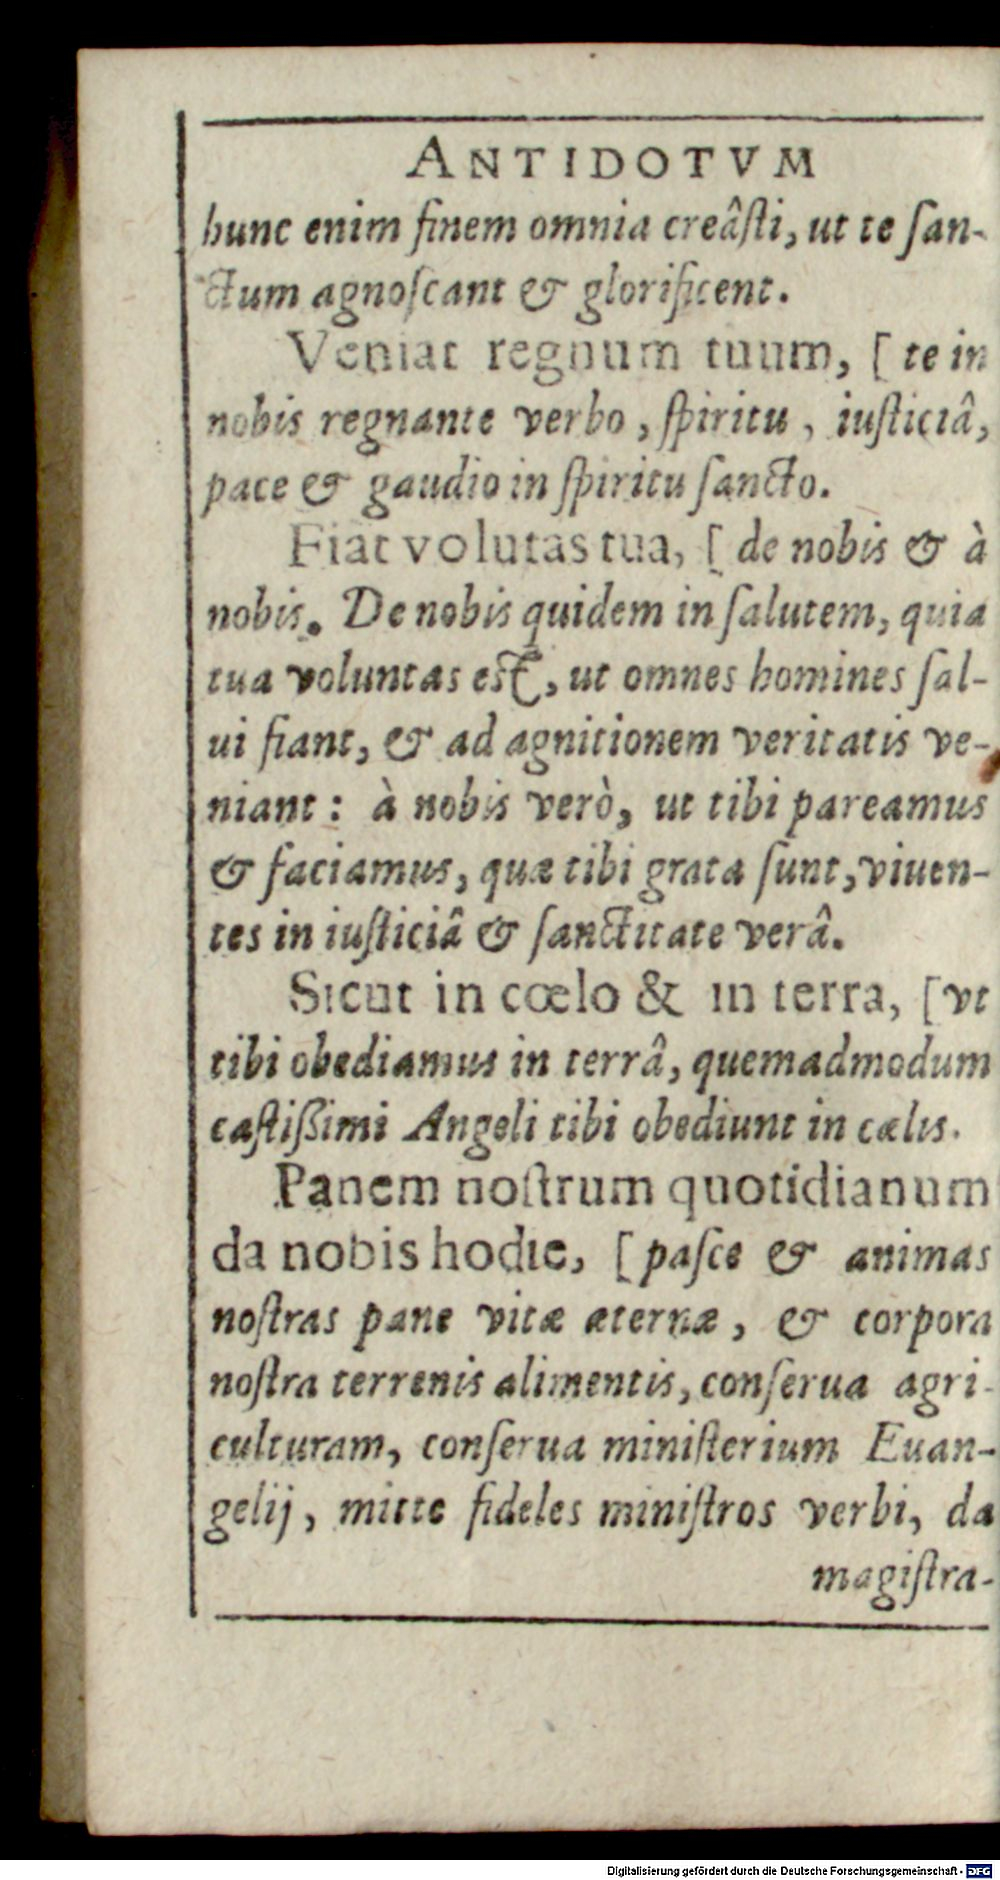 ANTIDOTVM
hunc enim finem omnia creâſti, ut te ſan-
ctum agnoſcant & glorificent.
Veniat regnum tuum, [ te in
nobis regnante verbo, ſpiritu, iuſticiâ,
pace & gaudio in ſpiritu ſancto.
Fiat volutas tua, [ de nobis & à
nobis. De nobis quidem in ſalutem, quia
tua voluntas est, ut omnes homines ſal-
ui fiant, & ad agnitionem veritatis ve-
niant: à nobis verò, ut tibi pareamus
& faciamus, quæ tibi grata ſunt, viuen-
tes in iuſticiâ & ſanctitate verâ.
Sicut in cœlo & in terra, [ vt
tibi obediamus in terrâ, quemadmodum
caſtißimi Angeli tibi obediunt in cælis.
Panem noſtrum quotidianum
da nobis hodie, [ paſce & animas
noſtras pane vitæ æternæ, & corpora
noſtra terrenis alimentis, conſerua agri-
culturam, conſerua miniſterium Euan-
gelij, mitte fideles miniſtros verbi, da
magiſtra-
Digitalisierung gefördert durch die Deutsche Forschungsgemeinschaft - DFG